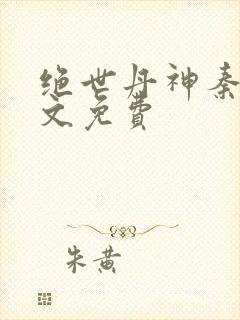 绝世丹神秦
文免费
朱黄